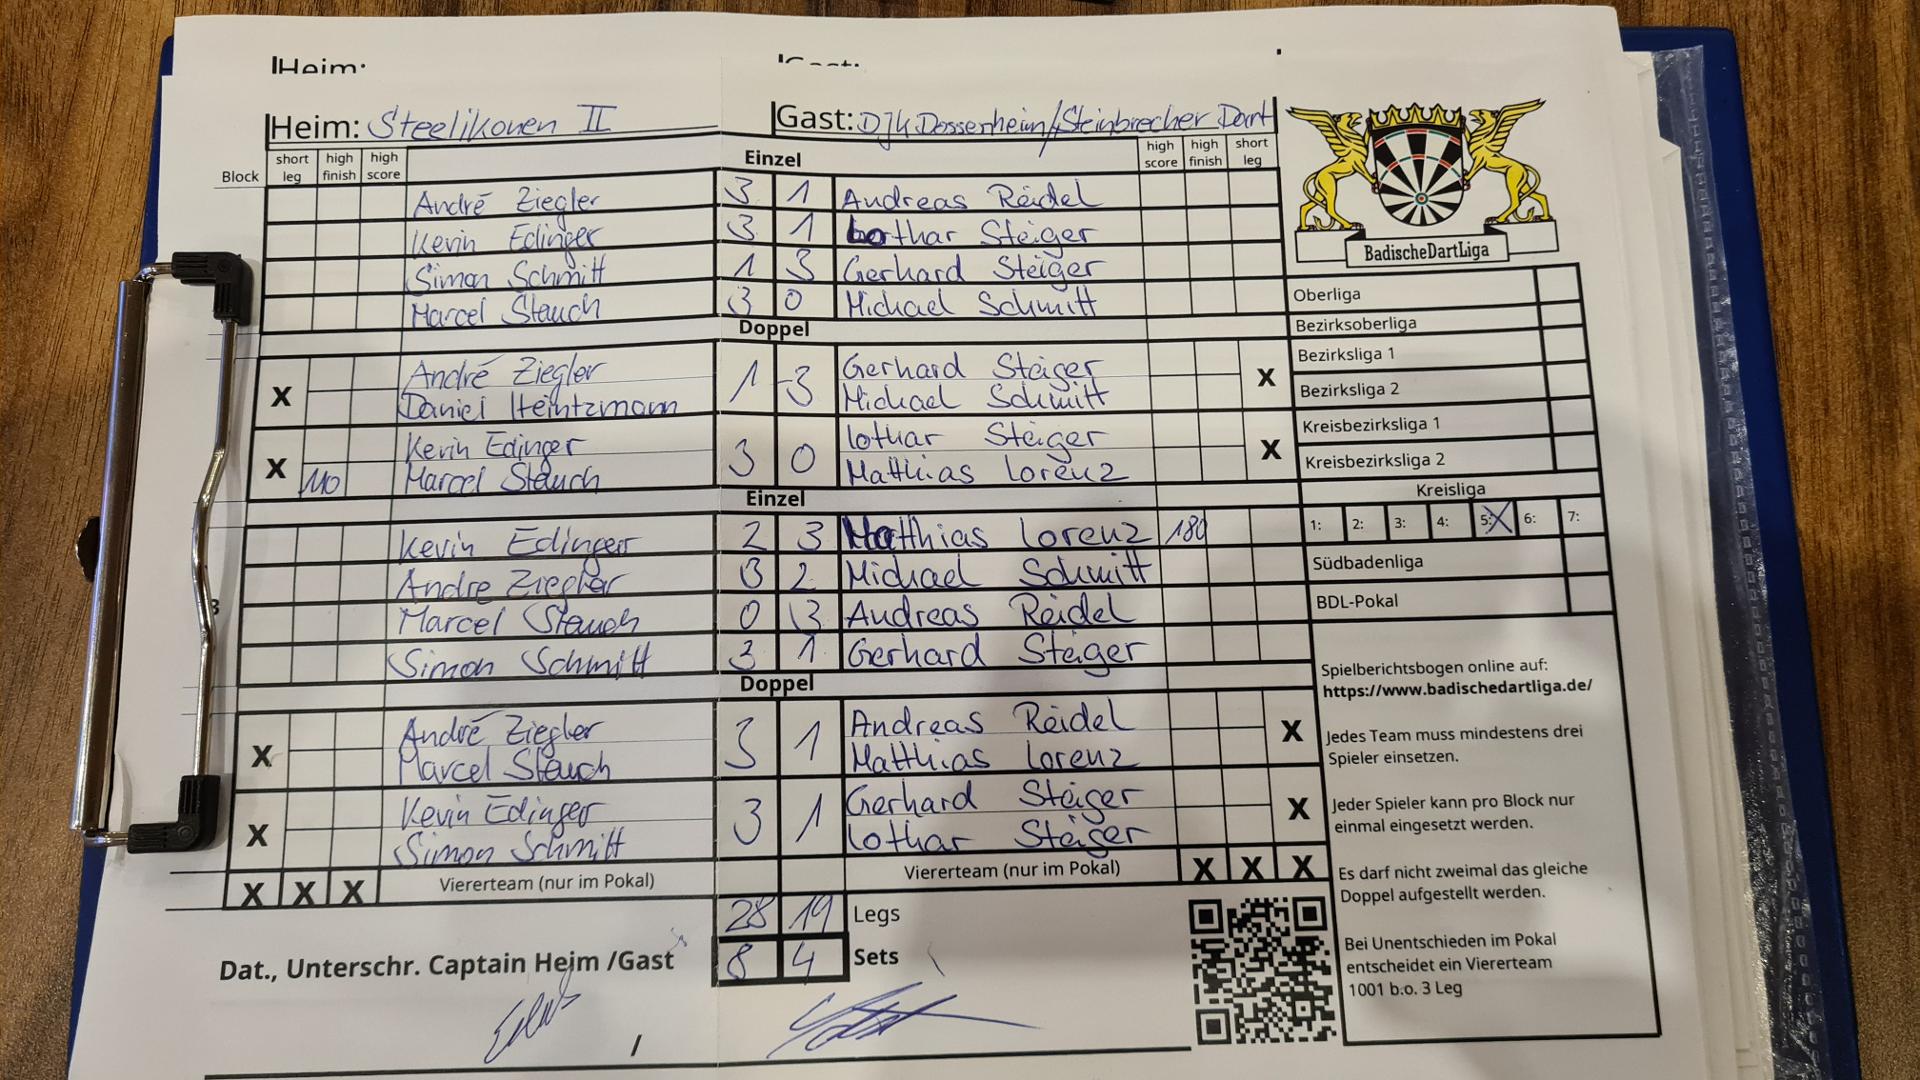 Heim:
Gast:
Heim: Steelikonen II Gast: DJK Dossenheim/Steinbrecher Dart
Block short leg high finish high score Einzel high score high finish short leg
André Ziegler 3 1 Andreas Reidel
Kevin Edinger 3 1 Lothar Steiger
Simon Schmitt 1 3 Gerhard Steiger
Marcel Stauch 3 0 Michael Schmitt
Doppel
X André Ziegler 1 3 Gerhard Steiger X
Daniel Heintzmann Michael Schmitt
X Kevin Edinger 3 0 Lothar Steiger X
110 Marcel Stauch Matthias Lorenz
Einzel
Kevin Edinger 2 3 Matthias Lorenz 180
Andre Ziegler 3 2 Michael Schmitt
Marcel Stauch 0 3 Andreas Reidel
Simon Schmitt 3 1 Gerhard Steiger
Doppel
X André Ziegler 3 1 Andreas Reidel X
Marcel Stauch Matthias Lorenz
X Kevin Edinger 3 1 Gerhard Steiger X
Simon Schmitt Lothar Steiger
X X X Viererteam (nur im Pokal) Viererteam (nur im Pokal) X X X
28 19 Legs
8 4 Sets
Dat., Unterschr. Captain Heim /Gast
/
BadischeDartLiga
Oberliga
Bezirksoberliga
Bezirksliga 1
Bezirksliga 2
Kreisbezirksliga 1
Kreisbezirksliga 2
Kreisliga
1: 2: 3: 4: 5: X 6: 7:
Südbadenliga
BDL-Pokal
Spielberichtsbogen online auf:
https://www.badischedartliga.de/
Jedes Team muss mindestens drei
Spieler einsetzen.
Jeder Spieler kann pro Block nur
einmal eingesetzt werden.
Es darf nicht zweimal das gleiche
Doppel aufgestellt werden.
Bei Unentschieden im Pokal
entscheidet ein Viererteam
1001 b.o. 3 Leg